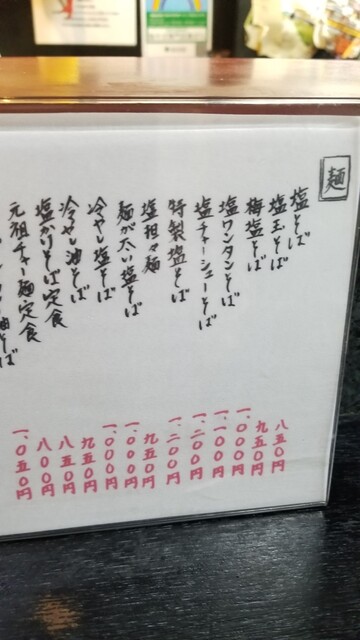 麺
塩そば
八五〇円
塩玉そば
九五〇円
梅塩そば
一、〇〇〇円
塩ワンタンそば
一、一〇〇円
塩チャーシューそば
一、二〇〇円
特製塩そば
一、二〇〇円
塩担々麺
九五〇円
麺がたい塩そば
一、〇〇〇円
冷やし塩そば
一、〇〇〇円
冷やし油そば
九五〇円
塩かけそば定食
八五〇円
元祖チャー麺定食
八〇〇円
油そば
一、〇五〇円